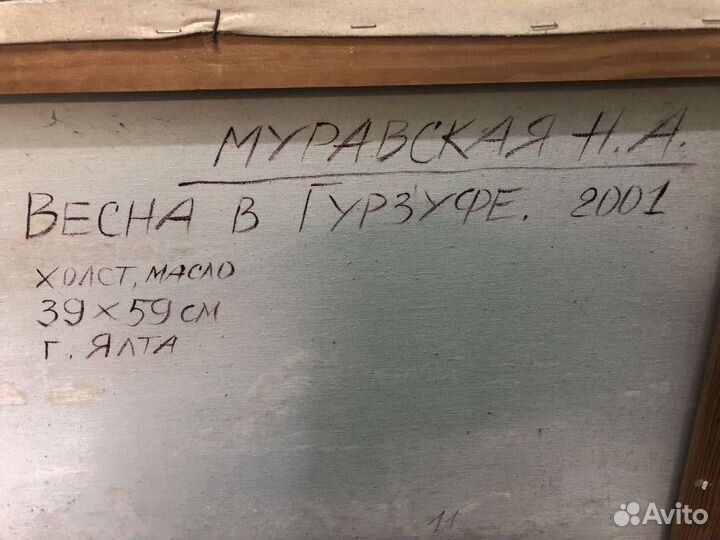 МУРАВСКАЯ Н.А.
ВЕСНА В ГУРЗУФЕ. 2001
ХОЛСТ, МАСЛО
39 х 59 см
г. ЯЛТА
11
Avito